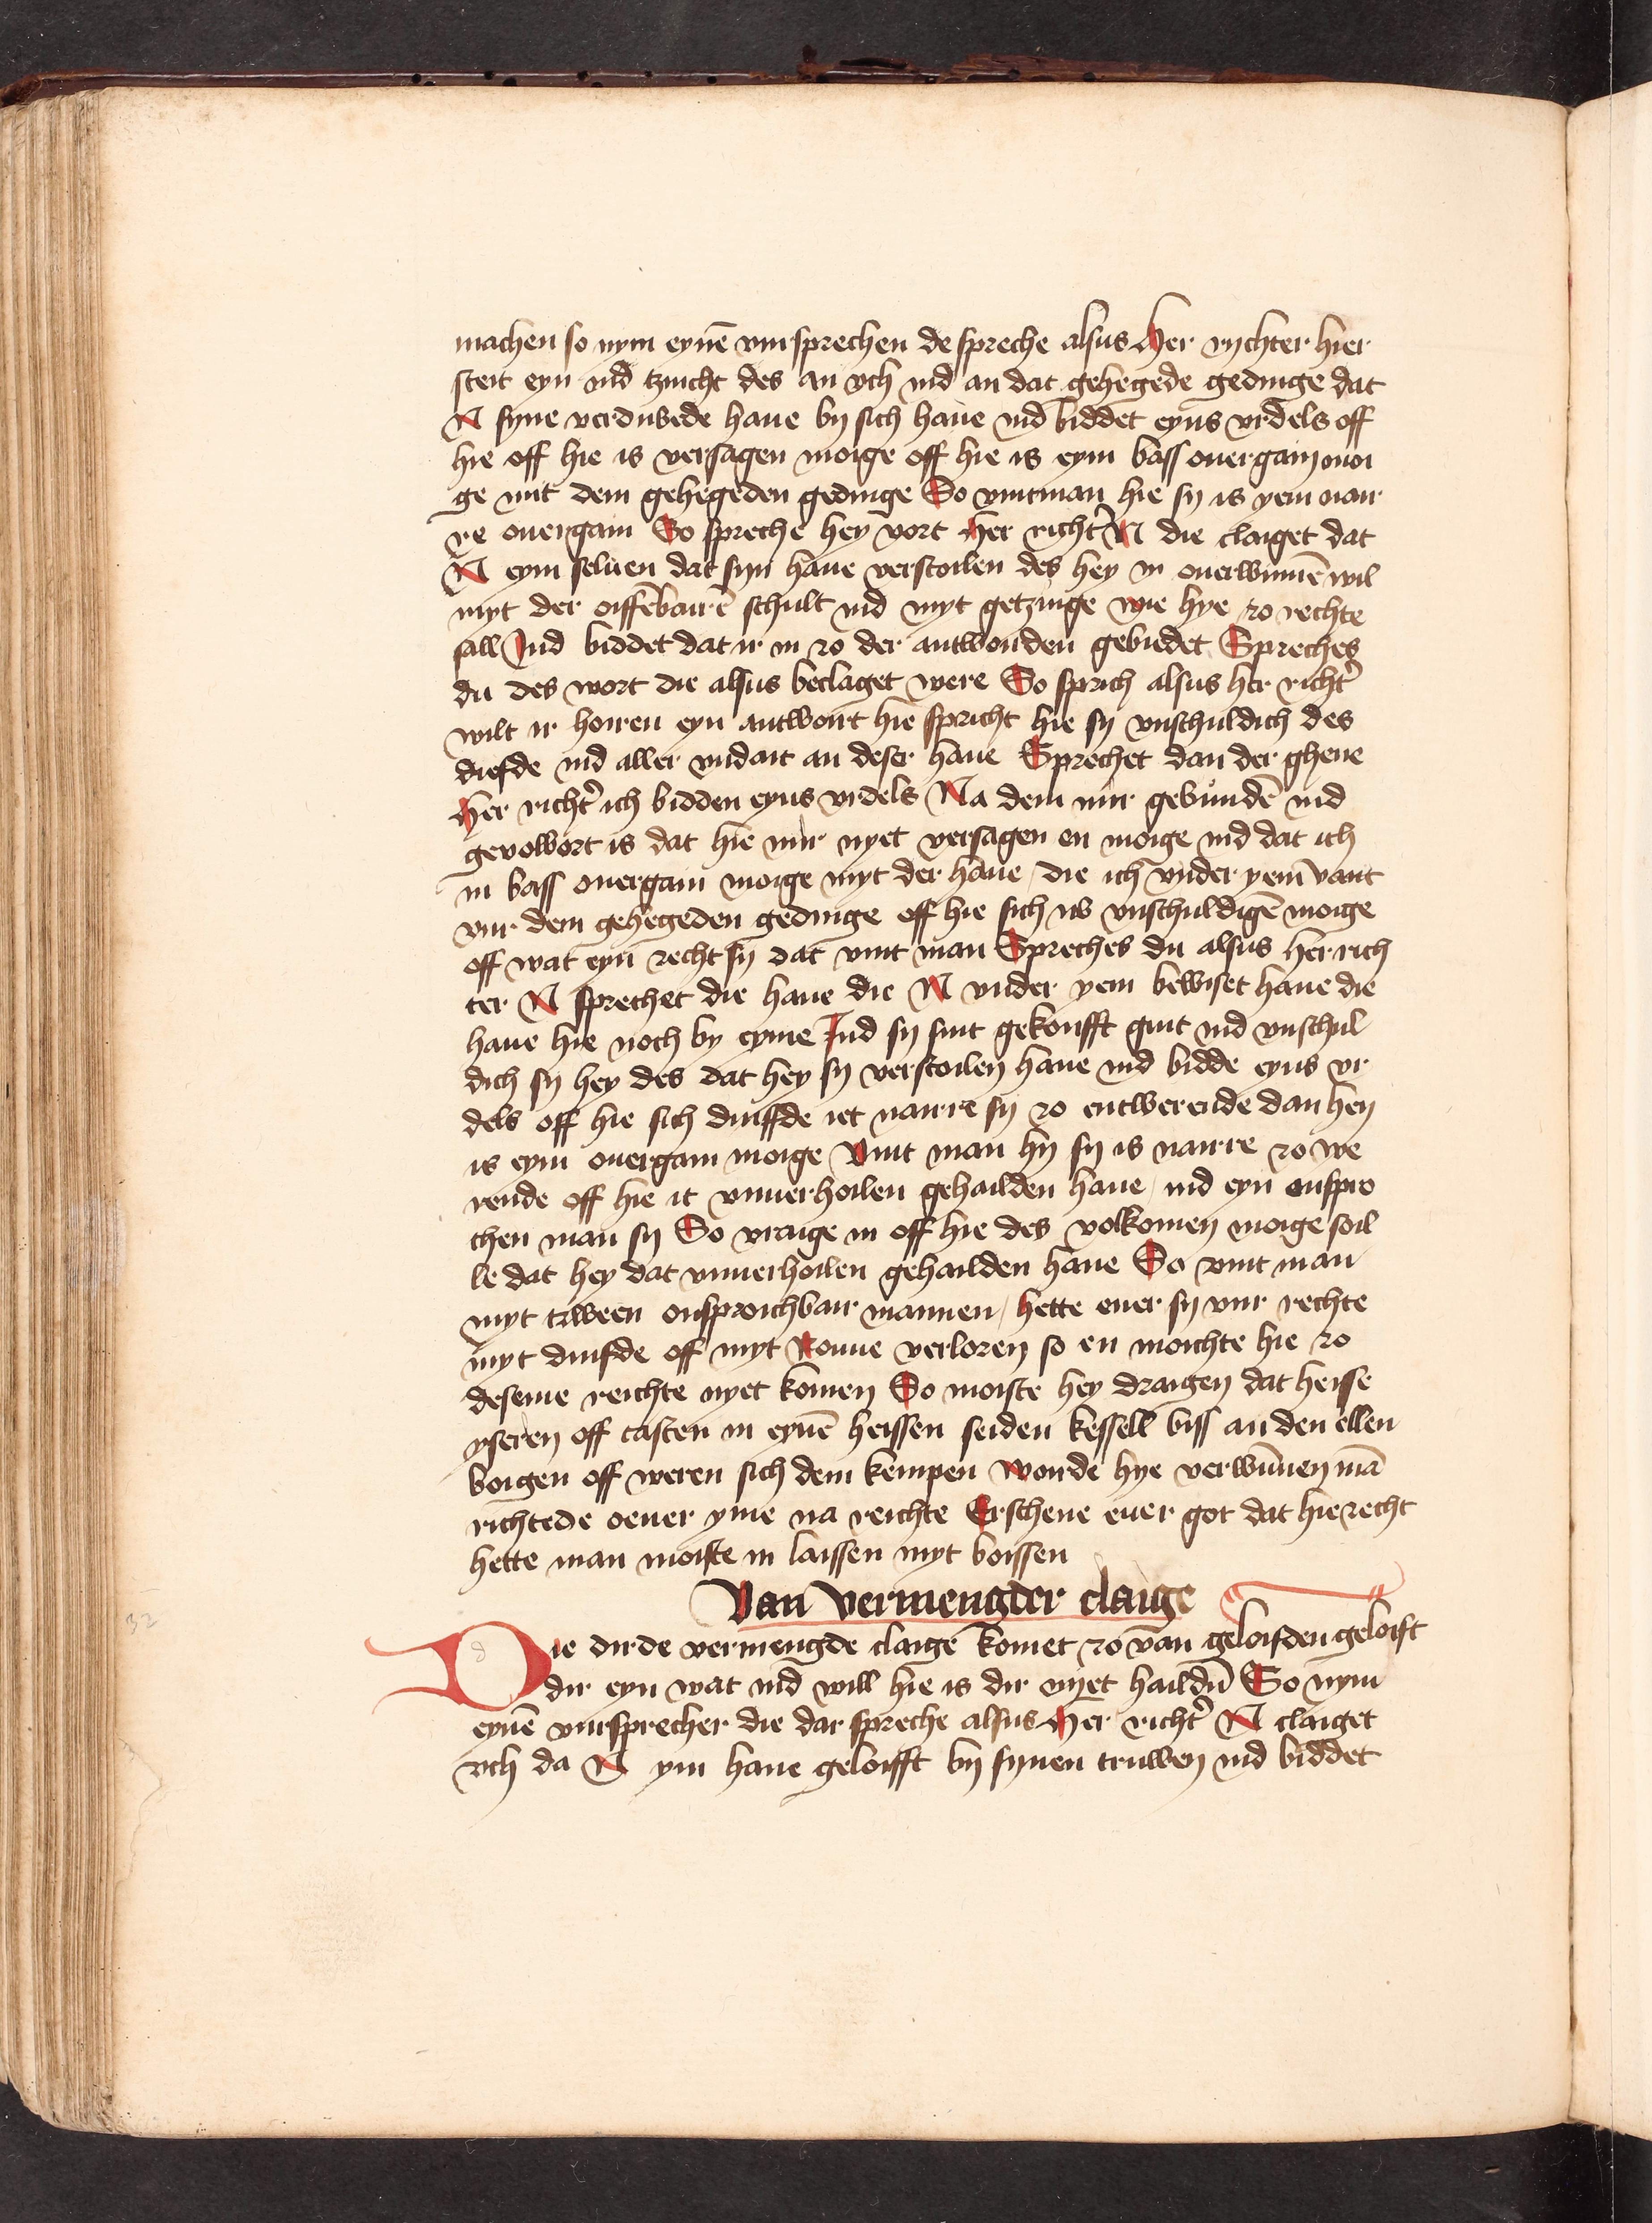 machen so nym eynē vursprechen de spreche alsus Her rychter hier
steit eyn ind tzuicht des an uch ind an dat gehegede gedinge dat
N syne verduvede haue by sich haue ind biddet eyns vrdels off
hie off hie is versagen moige off hie is eym bass ouergain moi
ge mit dem gehegeden gedinge So vintman hie sy is yem nair
re ouergain So spreche hey vort Her richt' N die claiget dat
N eym seluen dat syn haue verstoilen des hey in ouerwinnē wil
myt der oiffēbairē schult ind myt getzuige wie hye zo rechte
sall Ind biddet dat ir in zo der antworden gebiedet Spreches
du des wort die alsus beclaget were So sprich alsus her richt'
wilt ir hoiren eyn antwort hie spricht hie sy vnschuldich des
diefde ind aller vndait an deser haue Sprechet dan der ghene
Her richt' ich bidden eyns vrdels Na dem mir gevundē ind
gevolwort is dat hie mir nyet versagen en moige ind dat ich
in bass ouergain moige myt der haue / die ich vnder yem vant
vur dem gehegeden gedinge off hie sich us vnschuldigē moige
off wat eyn recht sy dat vint man Spreches du alsus her rich
ter N sprechet die haue die N vnder yem bewiset haue die
haue hie noch by eyme Ind sy sint gekoufft guit ind vnschul
dich sy hey des dat hey sy verstoilen haue ind bidde eyns vr
dels off hie sich duiffde iet nairre sy zo entwerende dan hey
is eym ouergain moige Vint man hy sy is nairre zo we
rende off hie it vnuerhoilen gehailden haue / ind eyn onspro
chen man sy So vraige in off hie des volkomen moige soil
le dat hey dat vnuerhoilen gehailden haue So vint man
myt tzween onsproichbair mannen / hette euer sy vur rechte
myt duifde off myt Rouue verloren so en moichte hie zo
deseme reichte nyet komen So moiste hey draigen dat heisse
yseren off tasten in eynē heissen seiden kessell biss an den ellen
boigen off weren sich dem kempen worde hye verwūnen mā
richtede oeuer yme na reichte Erschene euer got dat hie recht
hette man moiste in laissen myt boissen
Van vermengder claige
Die dirde vermengde claige komet zo van geloifden geloift
dir eyn wat ind will hie is dir nyet haildū So nym
eynē vursprecher die dar spreche alsus Her richt' N claiget
uch da N ym haue geloifft by synen truwen ind biddet
32